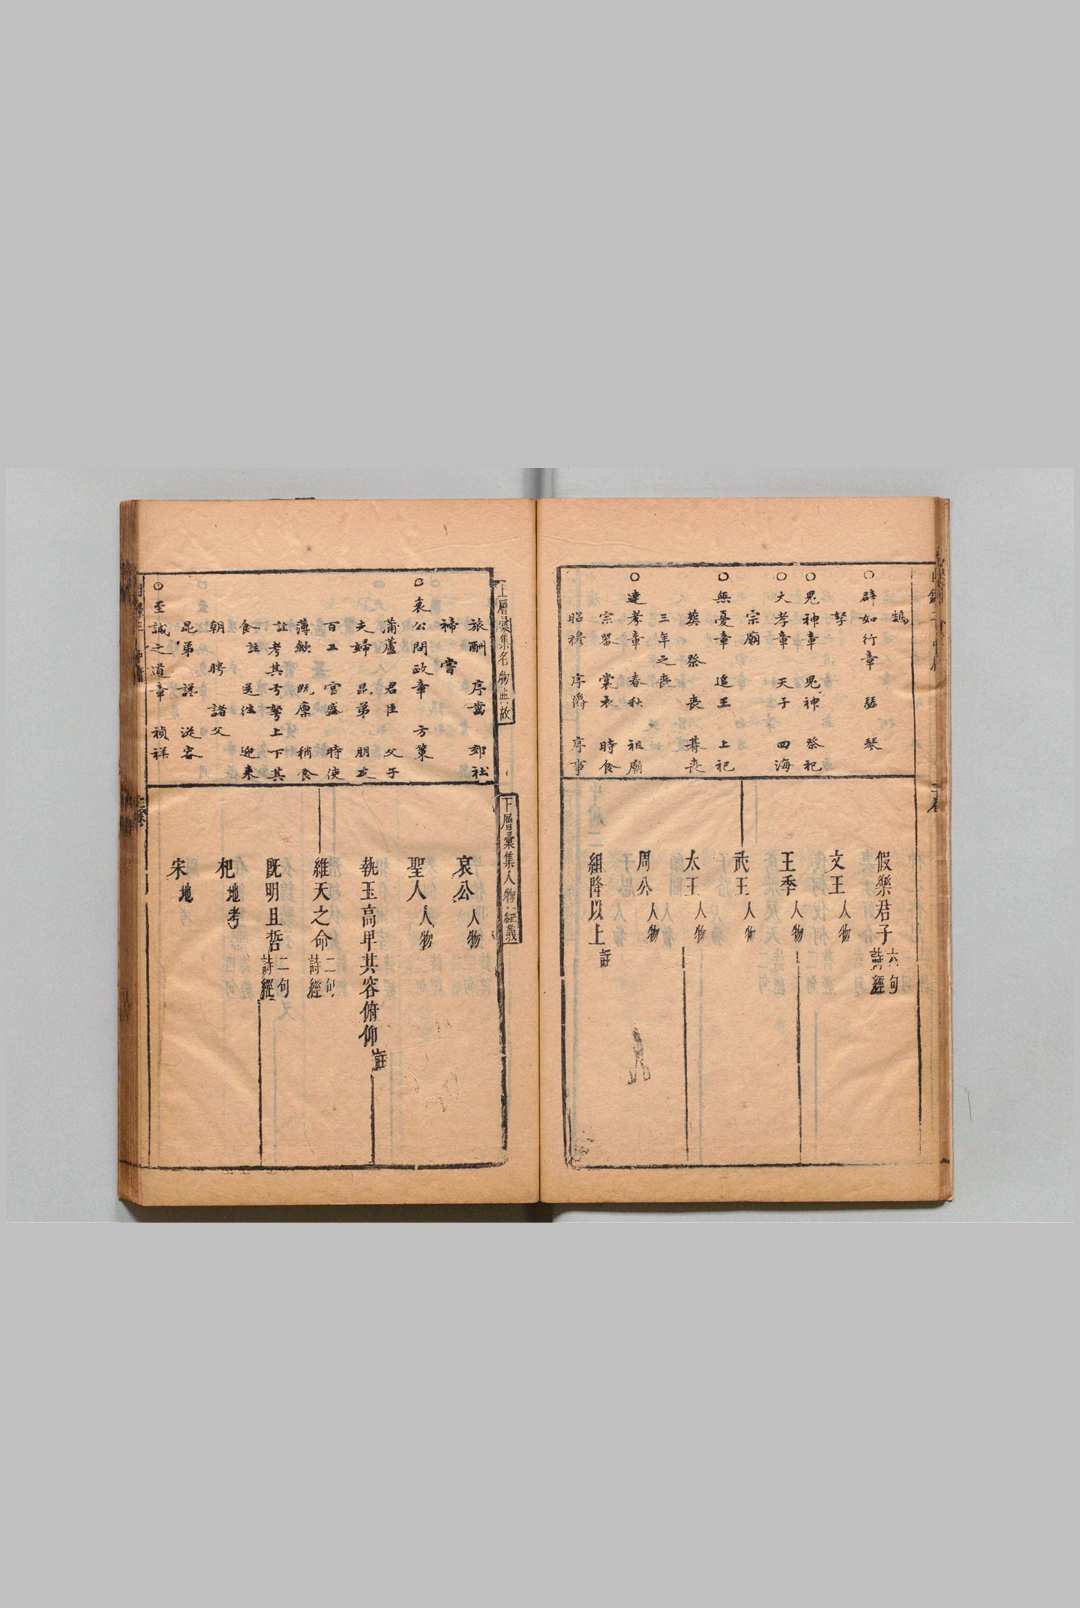 鵠
○辟如行章 瑟 琴
孥
○鬼神章 鬼神 祭祀
○大孝章 天子 四海
宗廟
○無憂章 追王 上祀
葬 祭 喪 葬喪
三年之喪
○達孝章 春秋 祖廟
宗器 裳衣 時食
昭穆 序爵 序事
假樂君子 六句詩經
文王 人物
王季 人物
武王 人物
太王 人物
周公 人物
組降以上 註
上層彙集名物典故
旅酬 序齒 郊社
禘 嘗
○哀公問政章 方策
蒲盧 君臣 父子
夫婦 昆弟 朋友
百工 官盛 時使
薄歛 既廩 稍食
註 考其弓弩上下其
食註 送往 迎來
朝 聘 諸父
昆弟 謹 從容
○至誠之道章 禎祥
下層彙集人物經義
哀公 人物
聖人 人物
執玉高卑其容俯仰 註
維天之命 二句詩經
既明且哲 二句詩經
杞 地考
宋 地